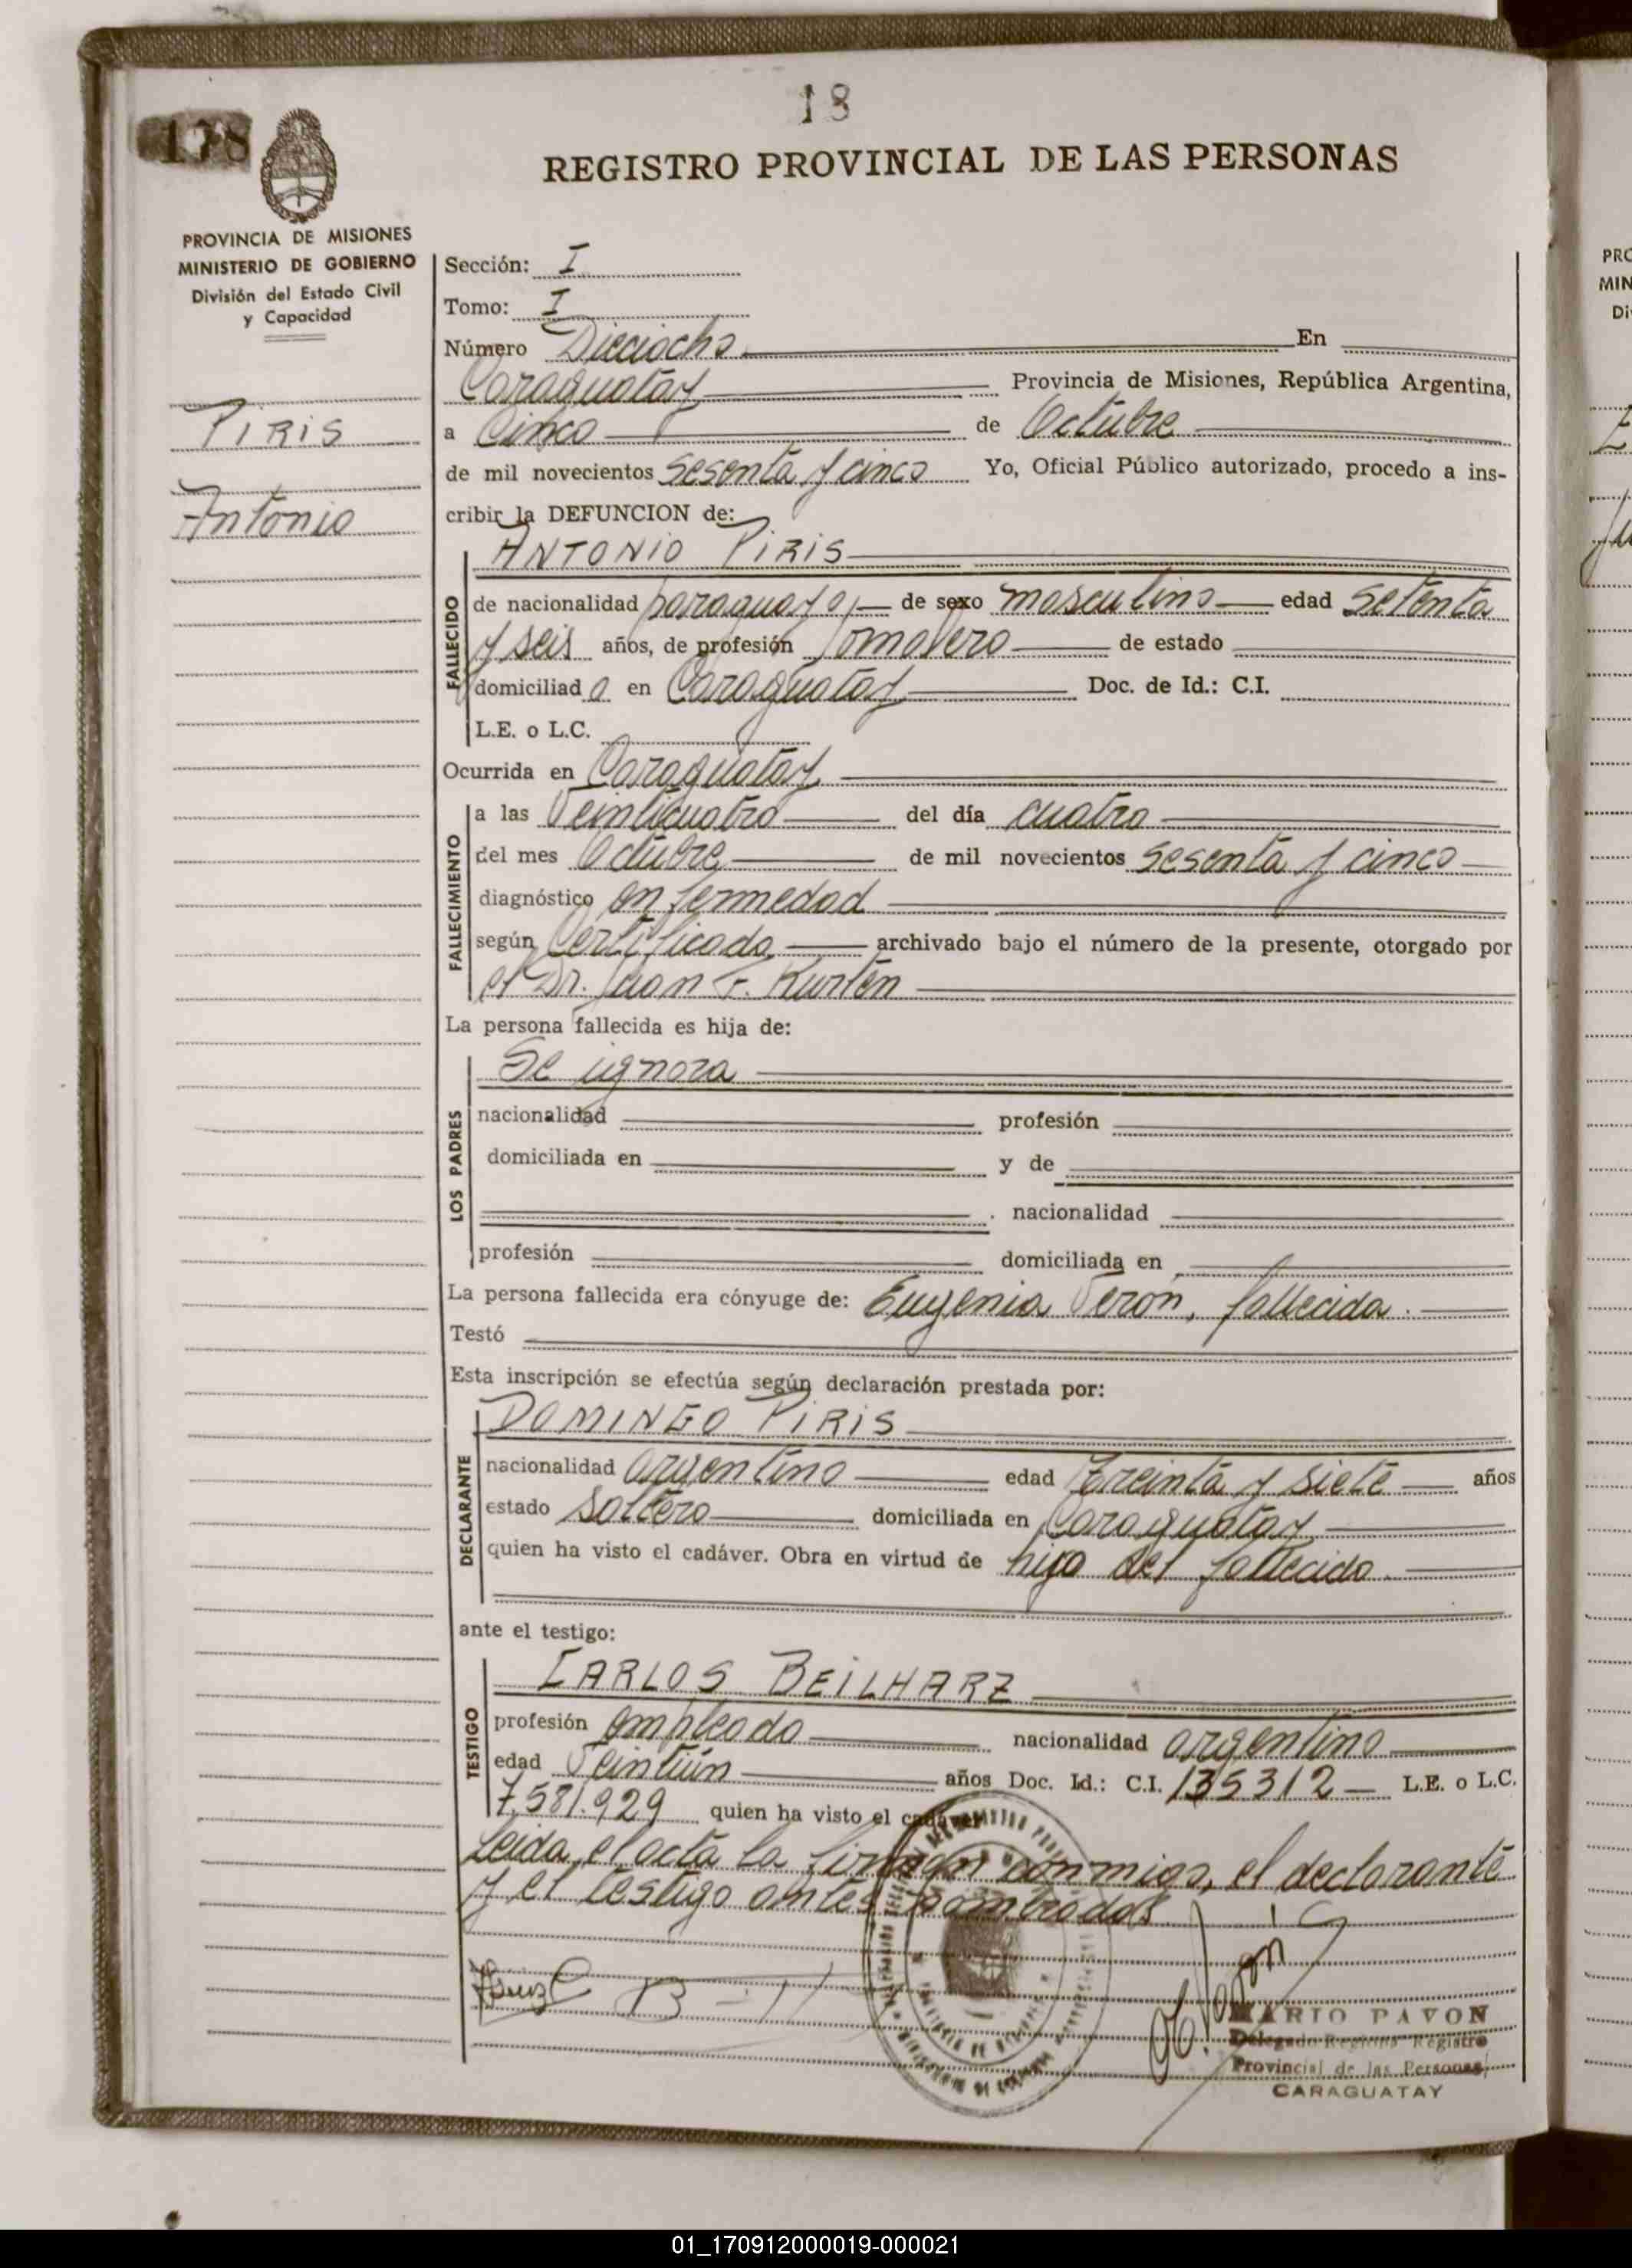 18
178
REGISTRO PROVINCIAL DE LAS PERSONAS
PROVINCIA DE MISIONES
MINISTERIO DE GOBIERNO
División del Estado Civil
y Capacidad
PIRIS
Antonio
Sección: I
Tomo: I
Número Dieciocho En
Caraguatay Provincia de Misiones, República Argentina,
a Cinco de Octubre
de mil novecientos sesenta y cinco Yo, Oficial Público autorizado, procedo a ins-
cribir la DEFUNCION de:
ANTONIO PIRIS
FALLECIDO
de nacionalidad paraguayo, de sexo masculino edad setenta
y seis años, de profesión Jornalero de estado
domiciliad o en Caraguatay Doc. de Id.: C.I.
L.E. o L.C.
Ocurrida en Caraguatay
FALLECIMIENTO
a las Veinticuatro del día cuatro
del mes Octubre de mil novecientos sesenta y cinco
diagnóstico enfermedad
según Certificado archivado bajo el número de la presente, otorgado por
el Dr. Juan F. Kurtén
La persona fallecida es hija de:
LOS PADRES
Se ignora
nacionalidad profesión
domiciliada en y de
nacionalidad
profesión domiciliada en
La persona fallecida era cónyuge de: Eugenia Verón, fallecida.
Testó
Esta inscripción se efectúa según declaración prestada por:
DECLARANTE
DOMINGO PIRIS
nacionalidad argentino edad Treinta y siete años
estado soltero domiciliada en Caraguatay
quien ha visto el cadáver. Obra en virtud de hijo del fallecido.
ante el testigo:
TESTIGO
CARLOS BEILHARZ
profesión empleado nacionalidad argentino
edad Veintiún años Doc. Id.: C.I. 135312 L.E. o L.C.
7.581.929 quien ha visto el cadáver
Leida el acta la firman conmigo, el declarante
y el testigo antes nombrados
MARIO PAVON
Delegado Registro
Provincial de las Personas
CARAGUATAY
01_170912000019-000021